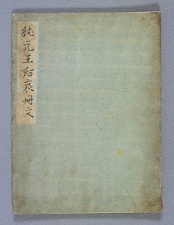 純元王后哀冊文